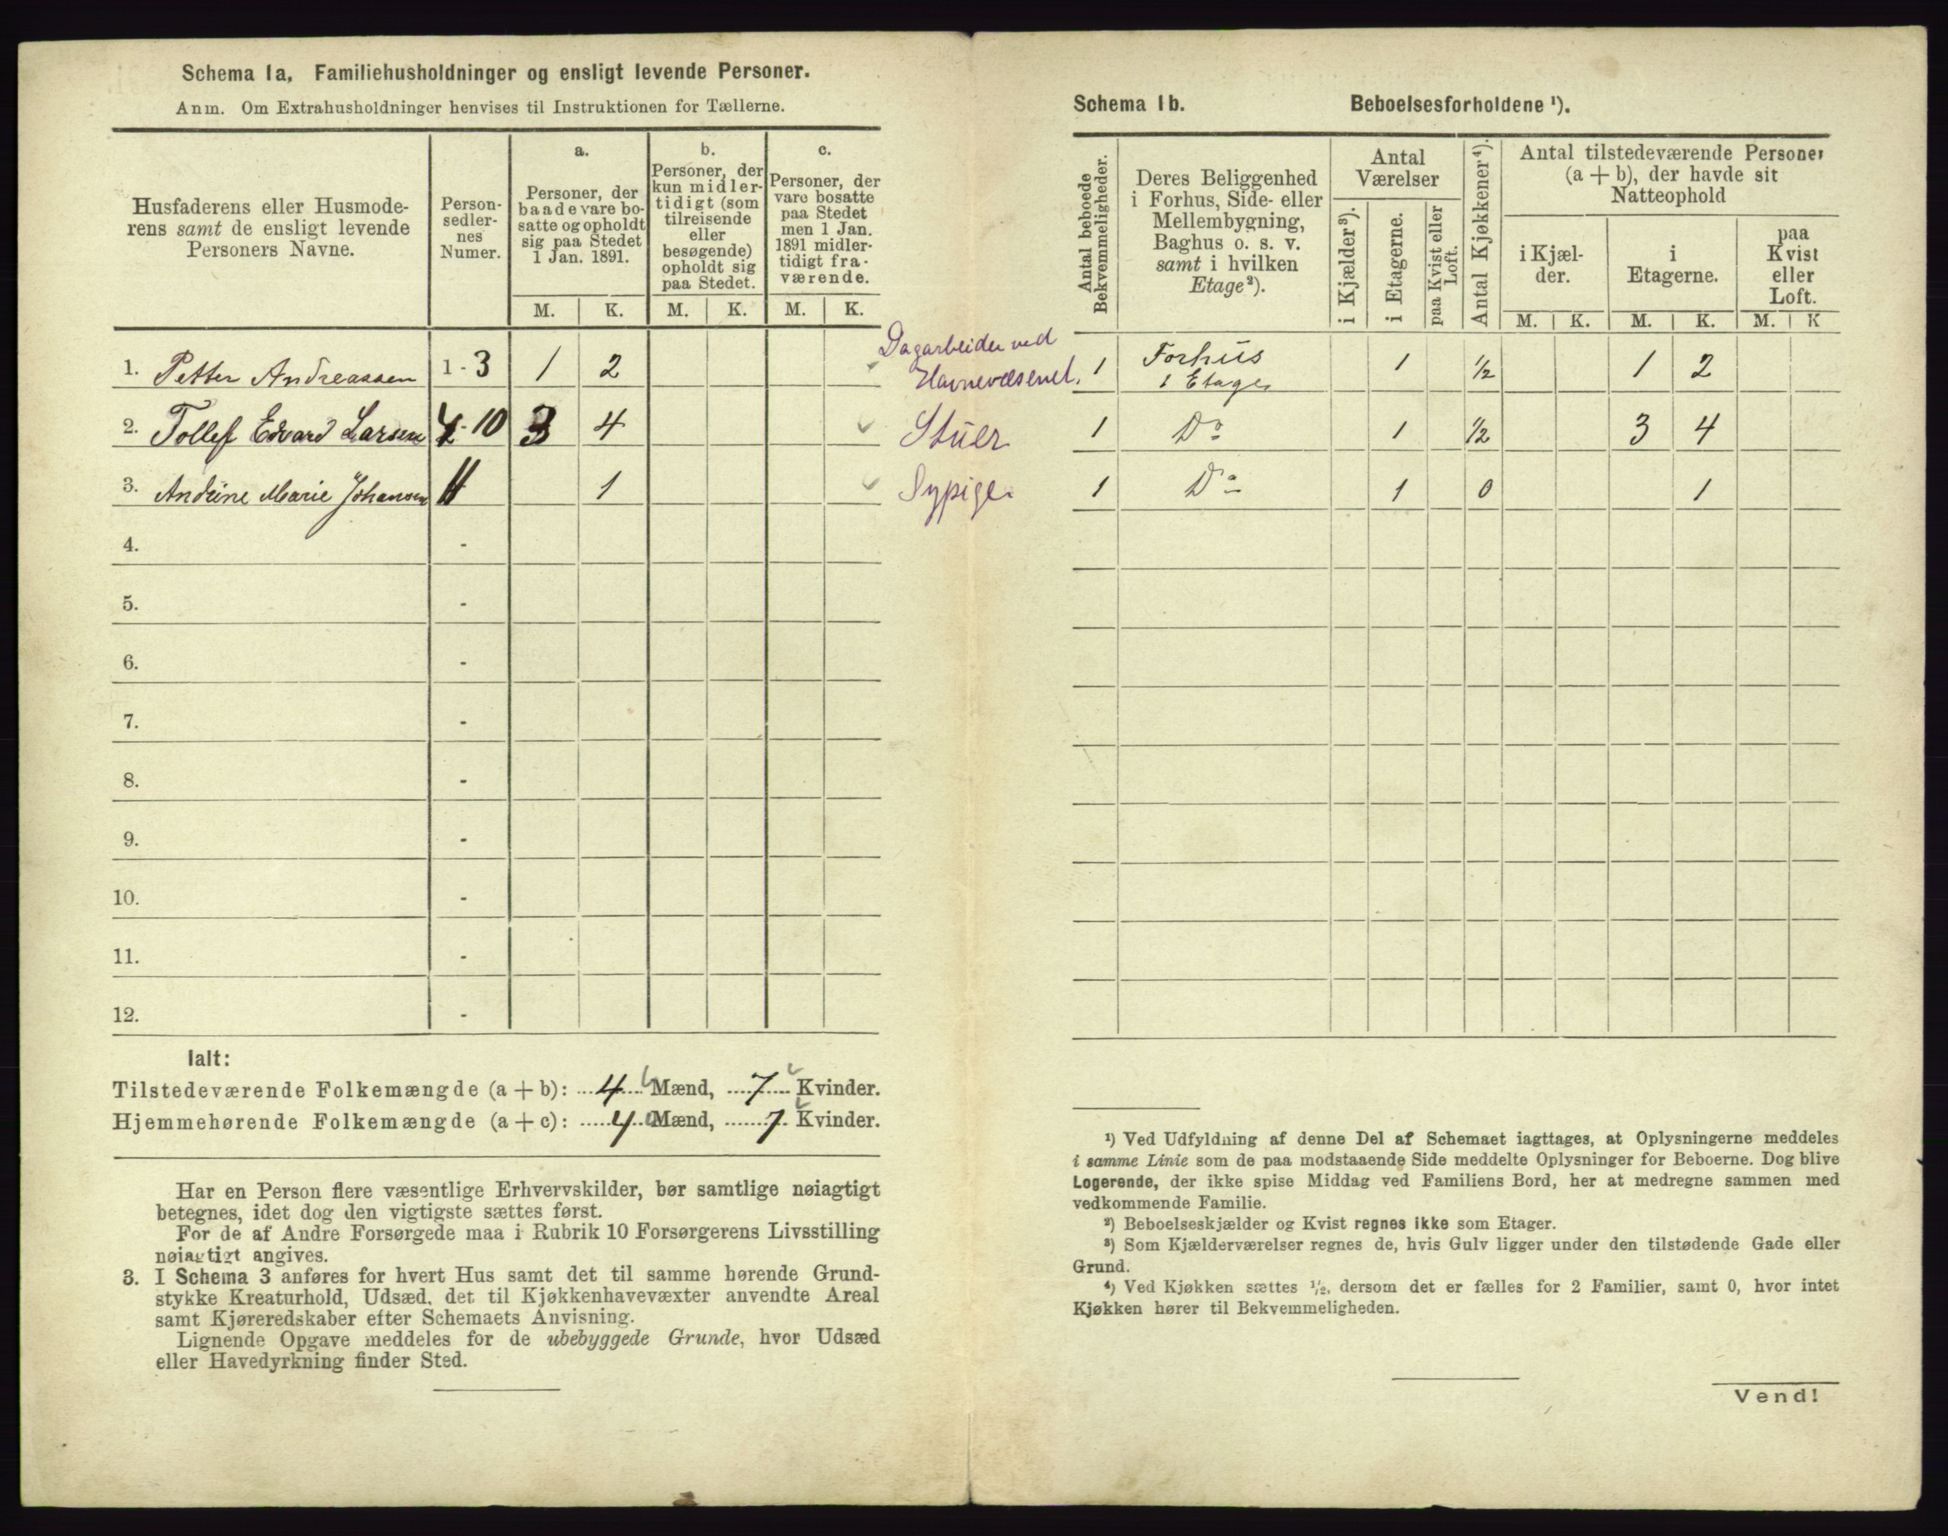 Schema 1a, Familiehusholdninger og ensligt levende Personer.
Anm. Om Extrahusholdninger henvises til Instruktionen for Tællerne.
Husfaderens eller Husmode-
rens samt de ensligt levende
Personers Navne.
Person-
sedler-
nes
Numer.
a.
Personer, der
baade vare bo-
satte og opholdt
sig paa Stedet
1 Jan. 1891.
b.
Personer, der
kun midler-
tidigt (som
tilreisende
eller
besøgende)
opholdt sig
paa Stedet.
c.
Personer, der
vare bosatte
paa Stedet
men 1 Jan.
1891 midler-
tidigt fra-
værende.
M. K. M. K. M. K.
1. Petter Andreassen 1-3 1 2 Dagarbeider ved
Havnevæsenet.
2. Tollef Edvard Larsen 4-10 3 4 Stuer
3. Andrine Marie Johansen 11 1 Sypige
4. -
5. -
6. -
7. -
8. -
9. -
10. -
11. -
12. -
Ialt:
Tilstedeværende Folkemængde (a + b): 4 Mænd, 7 Kvinder.
Hjemmehørende Folkemængde (a + c): 4 Mænd, 7 Kvinder.
Har en Person flere væsentlige Erhvervskilder, bør samtlige nøiagtigt
betegnes, idet dog den vigtigste sættes først.
For de af Andre Forsørgede maa i Rubrik 10 Forsørgerens Livsstilling
nøiagtigt angives.
3. I Schema 3 anføres for hvert Hus samt det til samme hørende Grund-
stykke Kreaturhold, Udsæd, det til Kjøkkenhavevæxter anvendte Areal
samt Kjøreredskaber efter Schemaets Anvisning.
Lignende Opgave meddeles for de ubebyggede Grunde, hvor Udsæd
eller Havedyrkning finder Sted.
Schema 1b. Beboelsesforholdene ¹).
Antal beboede
Bekvemmeligheder.
Deres Beliggenhed
i Forhus, Side- eller
Mellembygning,
Baghus o. s. v.
samt i hvilken
Etage²).
Antal
Værelser
i Kjælder³).
i Etagerne.
paa Kvist eller
Loft.
Antal Kjøkkener⁴).
Antal tilstedeværende Personer
(a + b), der havde sit
Natteophold
i Kjæl-
der.
i
Etagerne.
paa
Kvist
eller
Loft.
M. K. M. K. M. K
1 Forhus
1 Etage 1 ½ 1 2
1 Do 1 ½ 3 4
1 Do 1 0 1
¹) Ved Udfyldning af denne Del af Schemaet iagttages, at Oplysningerne meddeles
i samme Linie som de paa modstaaende Side meddelte Oplysninger for Beboerne. Dog blive
Logerende, der ikke spise Middag ved Familiens Bord, her at medregne sammen med
vedkommende Familie.
²) Beboelseskjælder og Kvist regnes ikke som Etager.
³) Som Kjælderværelser regnes de, hvis Gulv ligger under den tilstødende Gade eller
Grund.
⁴) Ved Kjøkken sættes ½, dersom det er fælles for 2 Familier, samt 0, hvor intet
Kjøkken hører til Bekvemmeligheden.
Vend!